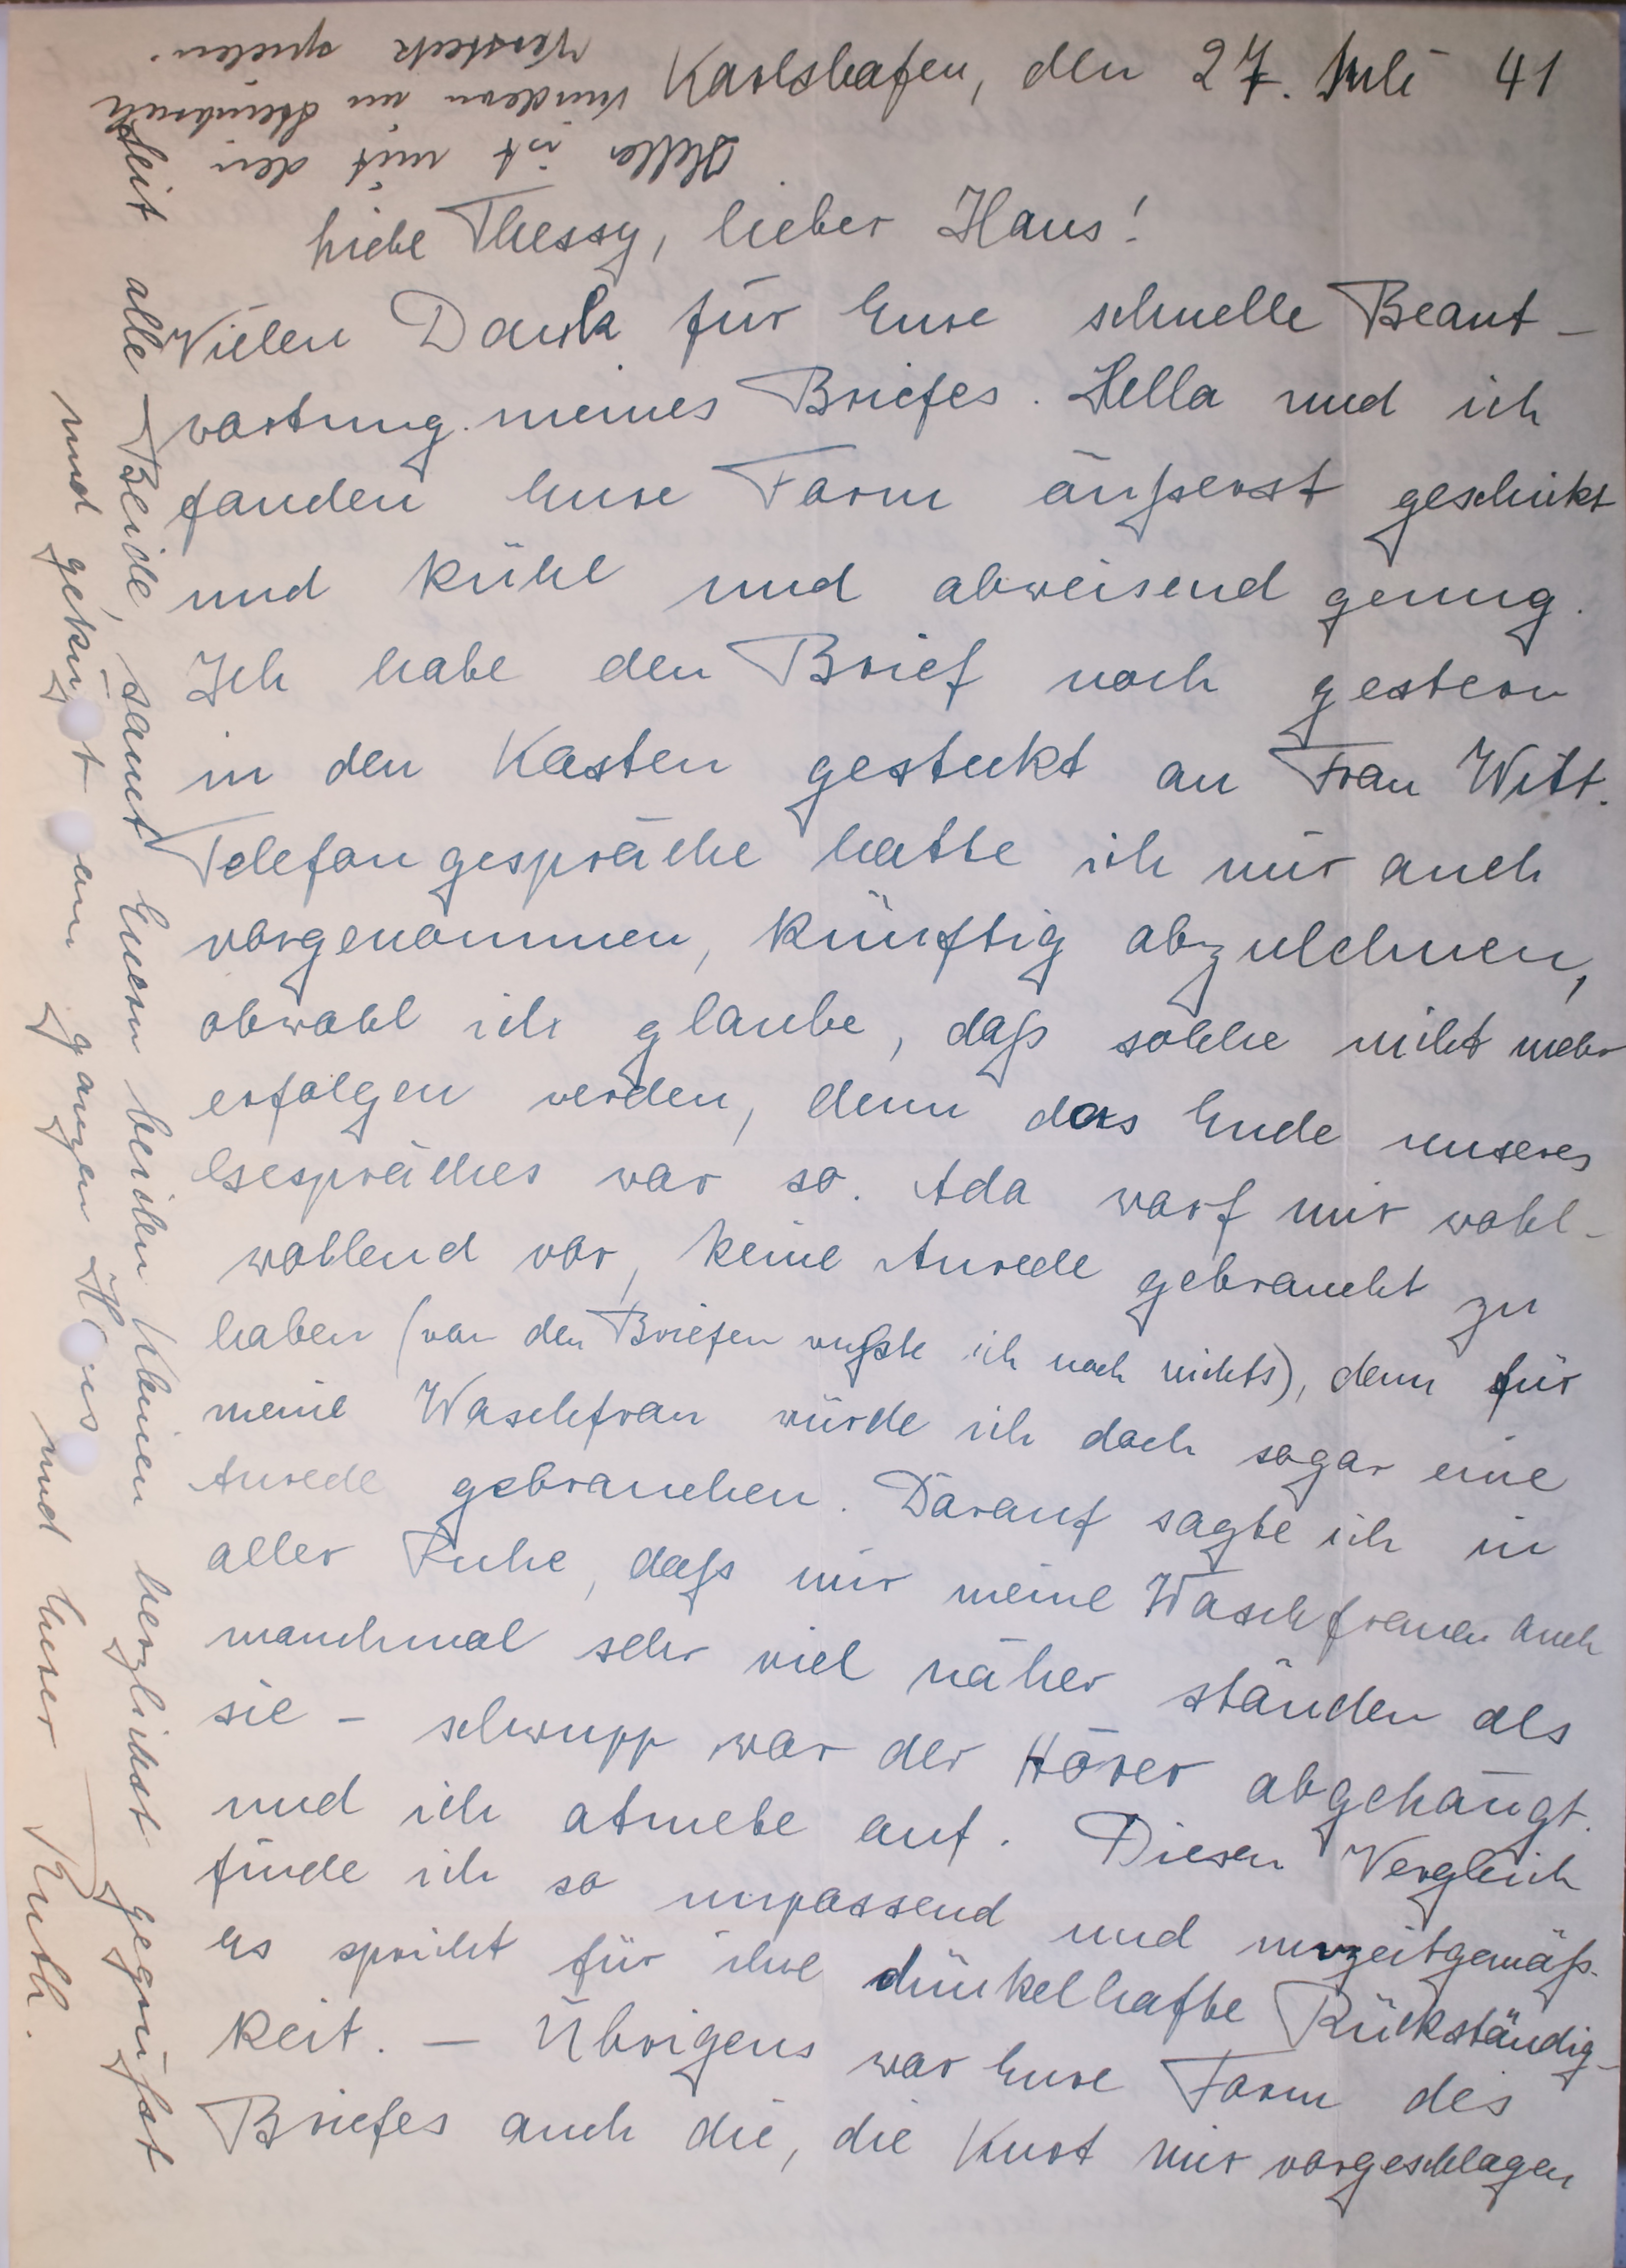 Karlshafen, den 27. Juli 41
Liebe Thessy, lieber Hans!
Vielen Dank für Eure schnelle Beant-
wortung meines Briefes. Hella und ich
fanden Eure Form äußerst geschickt
und kühl und abweisend genug.
Ich habe den Brief noch gestern
in den Kasten gesteckt an Frau Witt.
Telefongespräche hatte ich mir auch
vorgenommen, künftig abzulehnen,
obwohl ich glaube, daß solche nicht mehr
erfolgen werden, denn das Ende unseres
Gespräches war so. Ada warf mir wohl-
wollend vor, keine Anrede gebraucht zu
haben (von den Briefen wußte ich noch nichts), denn für
meine Waschfrau würde ich doch sogar eine
Anrede gebrauchen. Darauf sagte ich in
aller Ruhe, daß mir meine Waschfrauen auch
manchmal sehr viel näher ständen als
sie – schwupp war der Hörer abgehängt.
und ich atmete auf. Diesen Vergleich
finde ich so unpassend und unzeitgemäß.
Es spricht für ihre dünkelhafte Rückständig-
keit. – Übrigens war Eure Form des
Briefes auch die, die Kurt mir vorgeschlagen
Seid alle Beide, samt Euern beiden Kleinen herzlichst gegrüßt
und geküßt vom ganzen Haus und Eurer Ruth.
Hella ist mit den
Kindern im Steinbruch
Versteck spielen.